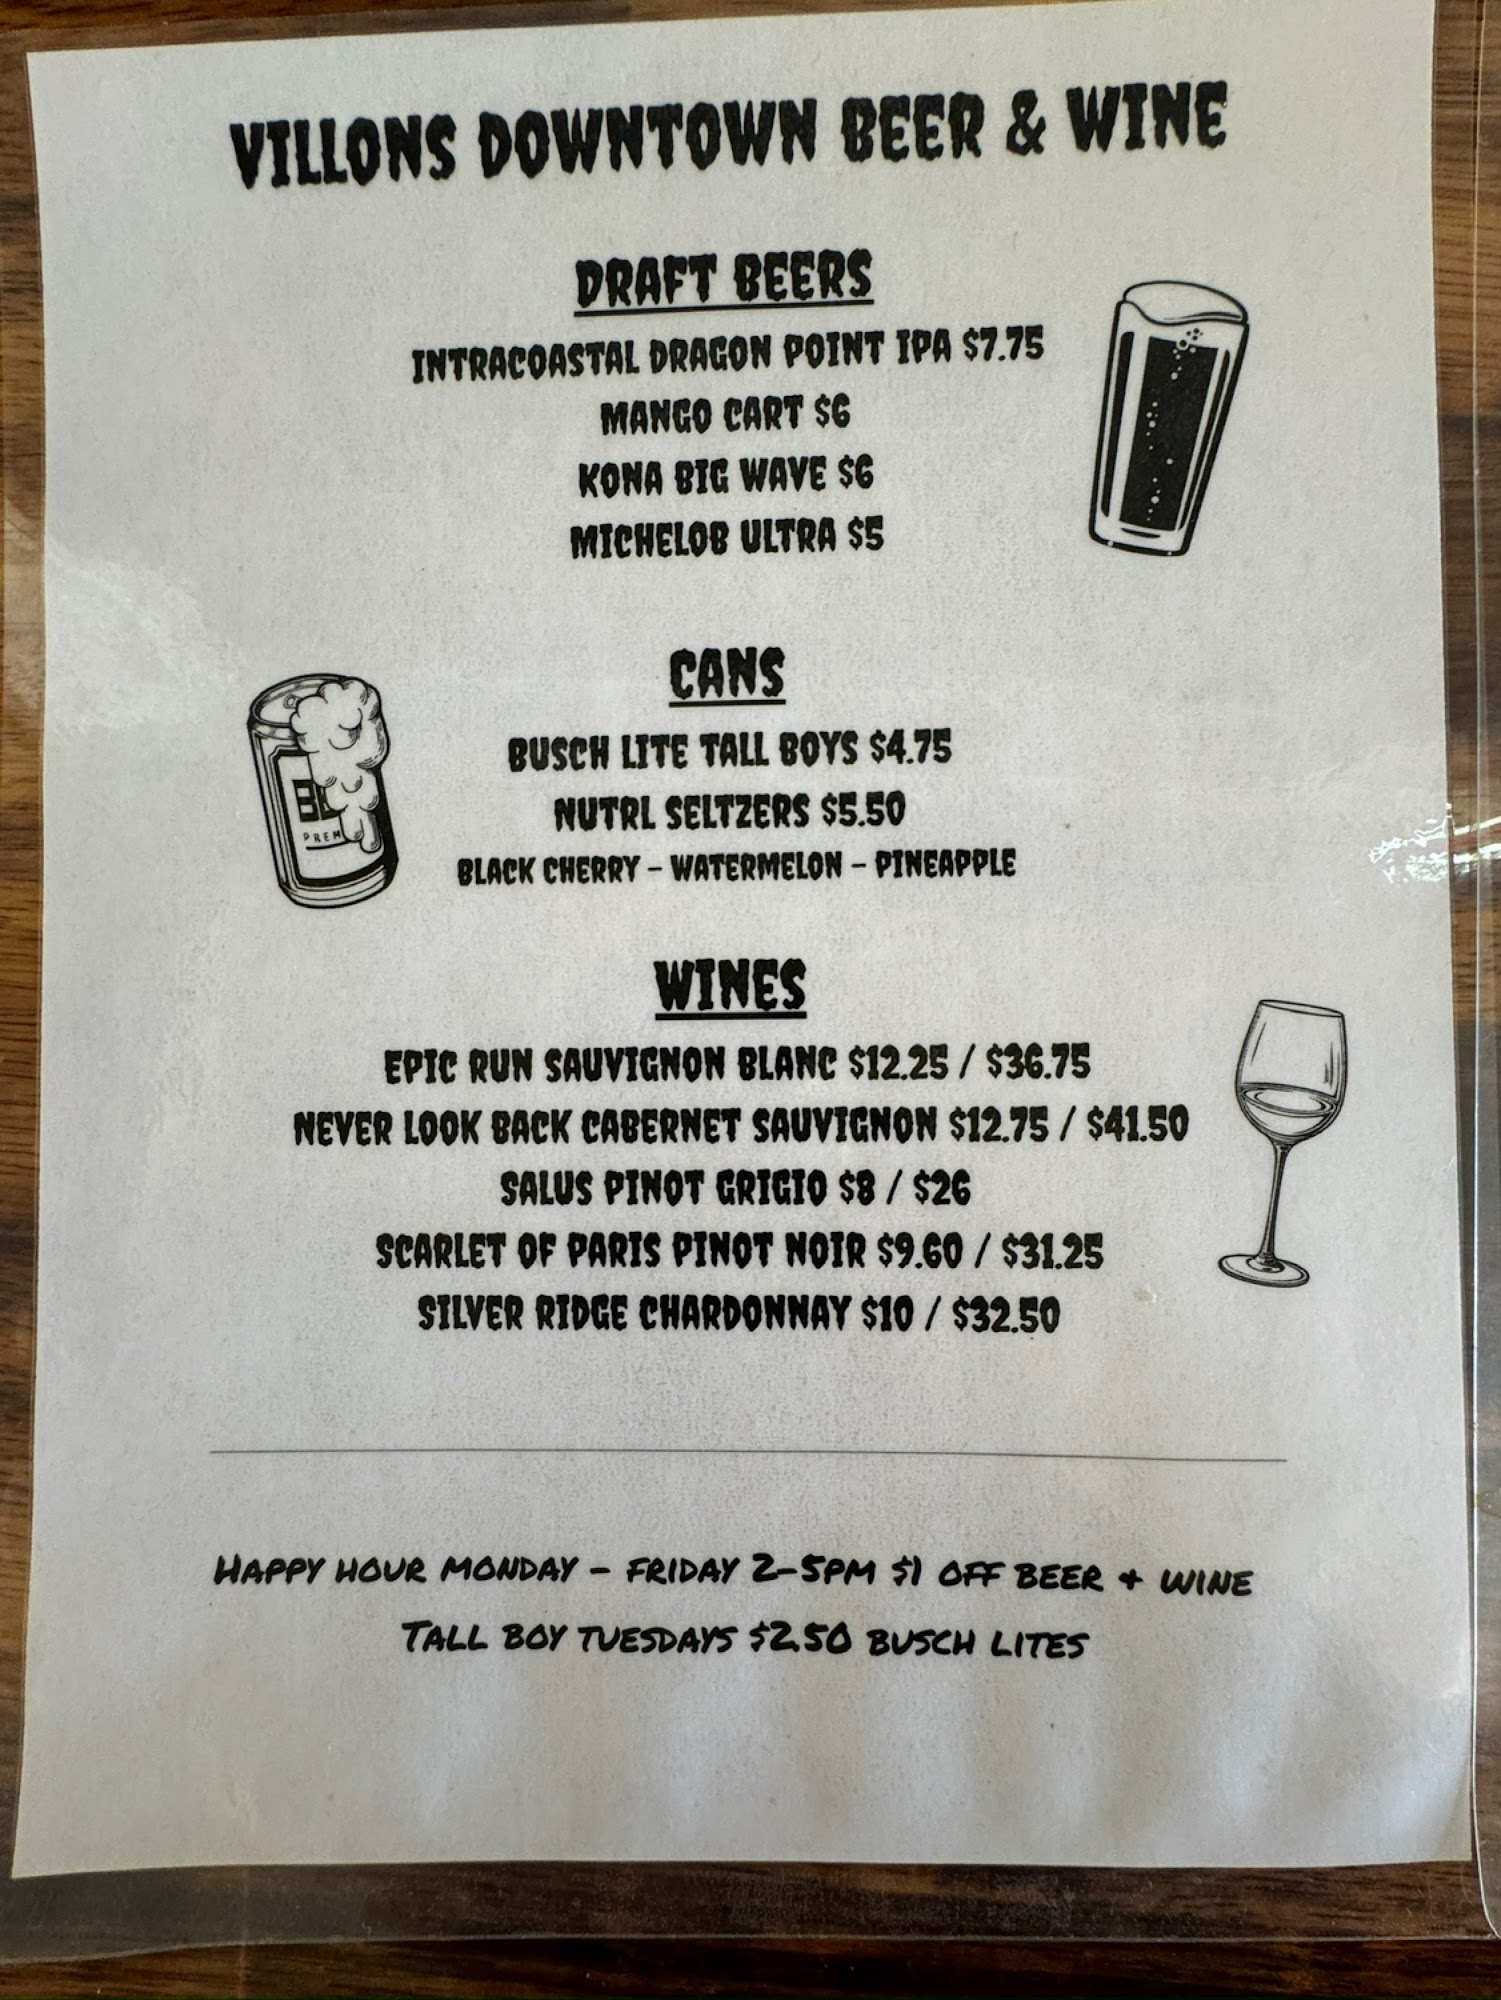 VILLONS DOWNTOWN BEER & WINE
DRAFT BEERS
INTRACOASTAL DRAGON POINT IPA $7.75
MANGO CART $6
KONA BIG WAVE $6
MICHELOB ULTRA $5
CANS
BUSCH LITE TALL BOYS $4.75
NUTRL SELTZERS $5.50
BLACK CHERRY – WATERMELON – PINEAPPLE
WINES
EPIC RUN SAUVIGNON BLANC $12.25 / $36.75
NEVER LOOK BACK CABERNET SAUVIGNON $12.75 / $41.50
SALUS PINOT GRIGIO $8 / $26
SCARLET OF PARIS PINOT NOIR $9.60 / $31.25
SILVER RIDGE CHARDONNAY $10 / $32.50
HAPPY HOUR MONDAY – FRIDAY 2–5PM $1 OFF BEER + WINE
TALL BOY TUESDAYS $2.50 BUSCH LITES